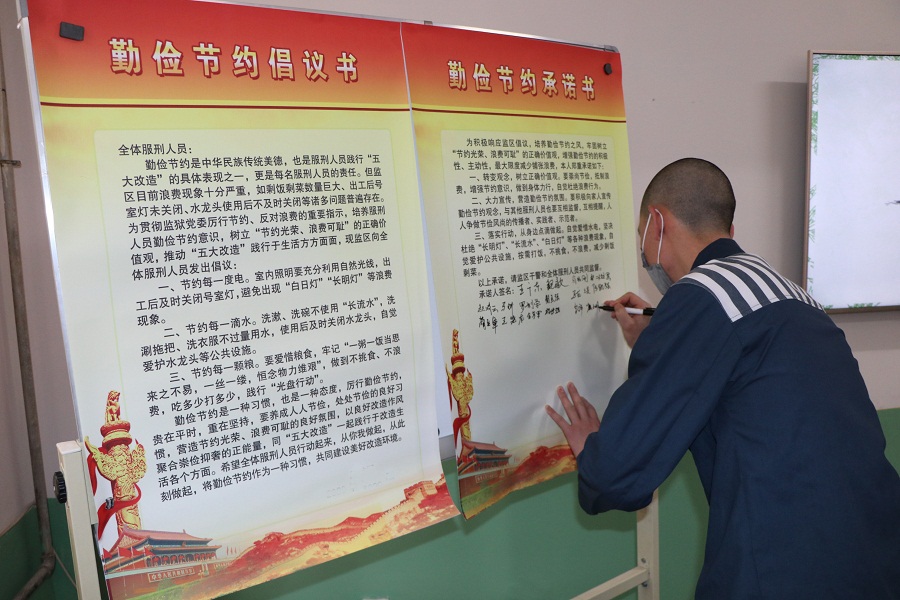 勤俭节约倡议书
全体服刑人员：
勤俭节约是中华民族传统美德，也是服刑人员践行“五
大改造”的具体表现之一，更是每名服刑人员的责任。但监
区目前浪费现象十分严重，如剩饭剩菜数量巨大、出工后号
室灯未关闭、水龙头使用后不及时关闭等诸多问题普遍存在。
为贯彻监狱党委厉行节约、反对浪费的重要指示，培养服刑
人员勤俭节约意识，树立“节约光荣、浪费可耻”的正确价
值观，推动“五大改造”践行于生活方方面面，现监区向全
体服刑人员发出倡议：
一、节约每一度电。室内照明要充分利用自然光线，出
工后及时关闭号室灯，避免出现“白日灯”“长明灯”等浪费
现象。
二、节约每一滴水。洗漱、洗碗不使用“长流水”，洗
涮拖把、洗衣服不过量用水，使用后及时关闭水龙头，自觉
爱护水龙头等公共设施。
三、节约每一颗粮。要爱惜粮食，牢记“一粥一饭当思
来之不易，一丝一缕，恒念物力维艰”，做到不挑食、不浪
费，吃多少打多少，践行“光盘行动”。
勤俭节约是一种习惯，也是一种态度，厉行勤俭节约，
贵在平时，重在坚持，要养成人人节俭，处处节俭的良好习
惯，营造节约光荣、浪费可耻的良好氛围，以良好改造作风
聚合崇俭抑奢的正能量，同“五大改造”一起践行于改造生
活各个方面。希望全体服刑人员行动起来，从你我做起，从此
刻做起，将勤俭节约作为一种习惯，共同建设美好改造环境。
勤俭节约承诺书
为积极响应监区倡议，培养勤俭节约之风，牢固树立
“节约光荣、浪费可耻”的正确价值观，增强勤俭节约的积极
性、主动性，最大限度减少铺张浪费，本人郑重承诺如下：
一、转变观念，树立正确价值观，要崇尚节俭，抵制浪
费，增强节约的意识，做到身体力行，自觉杜绝浪费行为。
二、大力宣传，营造勤俭节约的氛围。要积极向家人宣传
勤俭节约观念，与其他服刑人员也要互相监督，互相提醒，人
人争做节俭风尚的传播者、实践者、示范者。
三、落实行动，从身边点滴做起。自觉爱惜水电，坚决
杜绝“长明灯”、“长流水”、“白日灯”等各种浪费现象，自
觉爱护公共设施，按需打饭，不挑食，不浪费，减少剩饭
剩菜。
以上承诺，请监区干警和全体服刑人员共同监督。
承诺人签名：